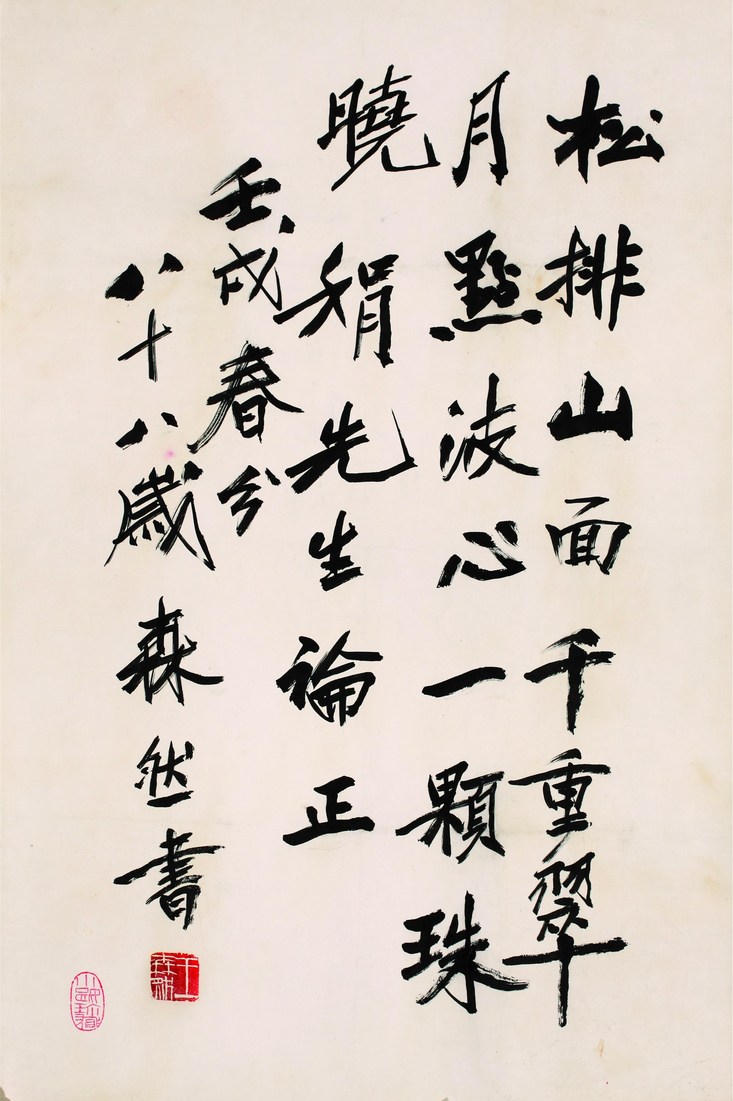 松排山面千重翠
月點波心一顆珠
曉狷先生論正
壬戌春分
八十八歲森然書